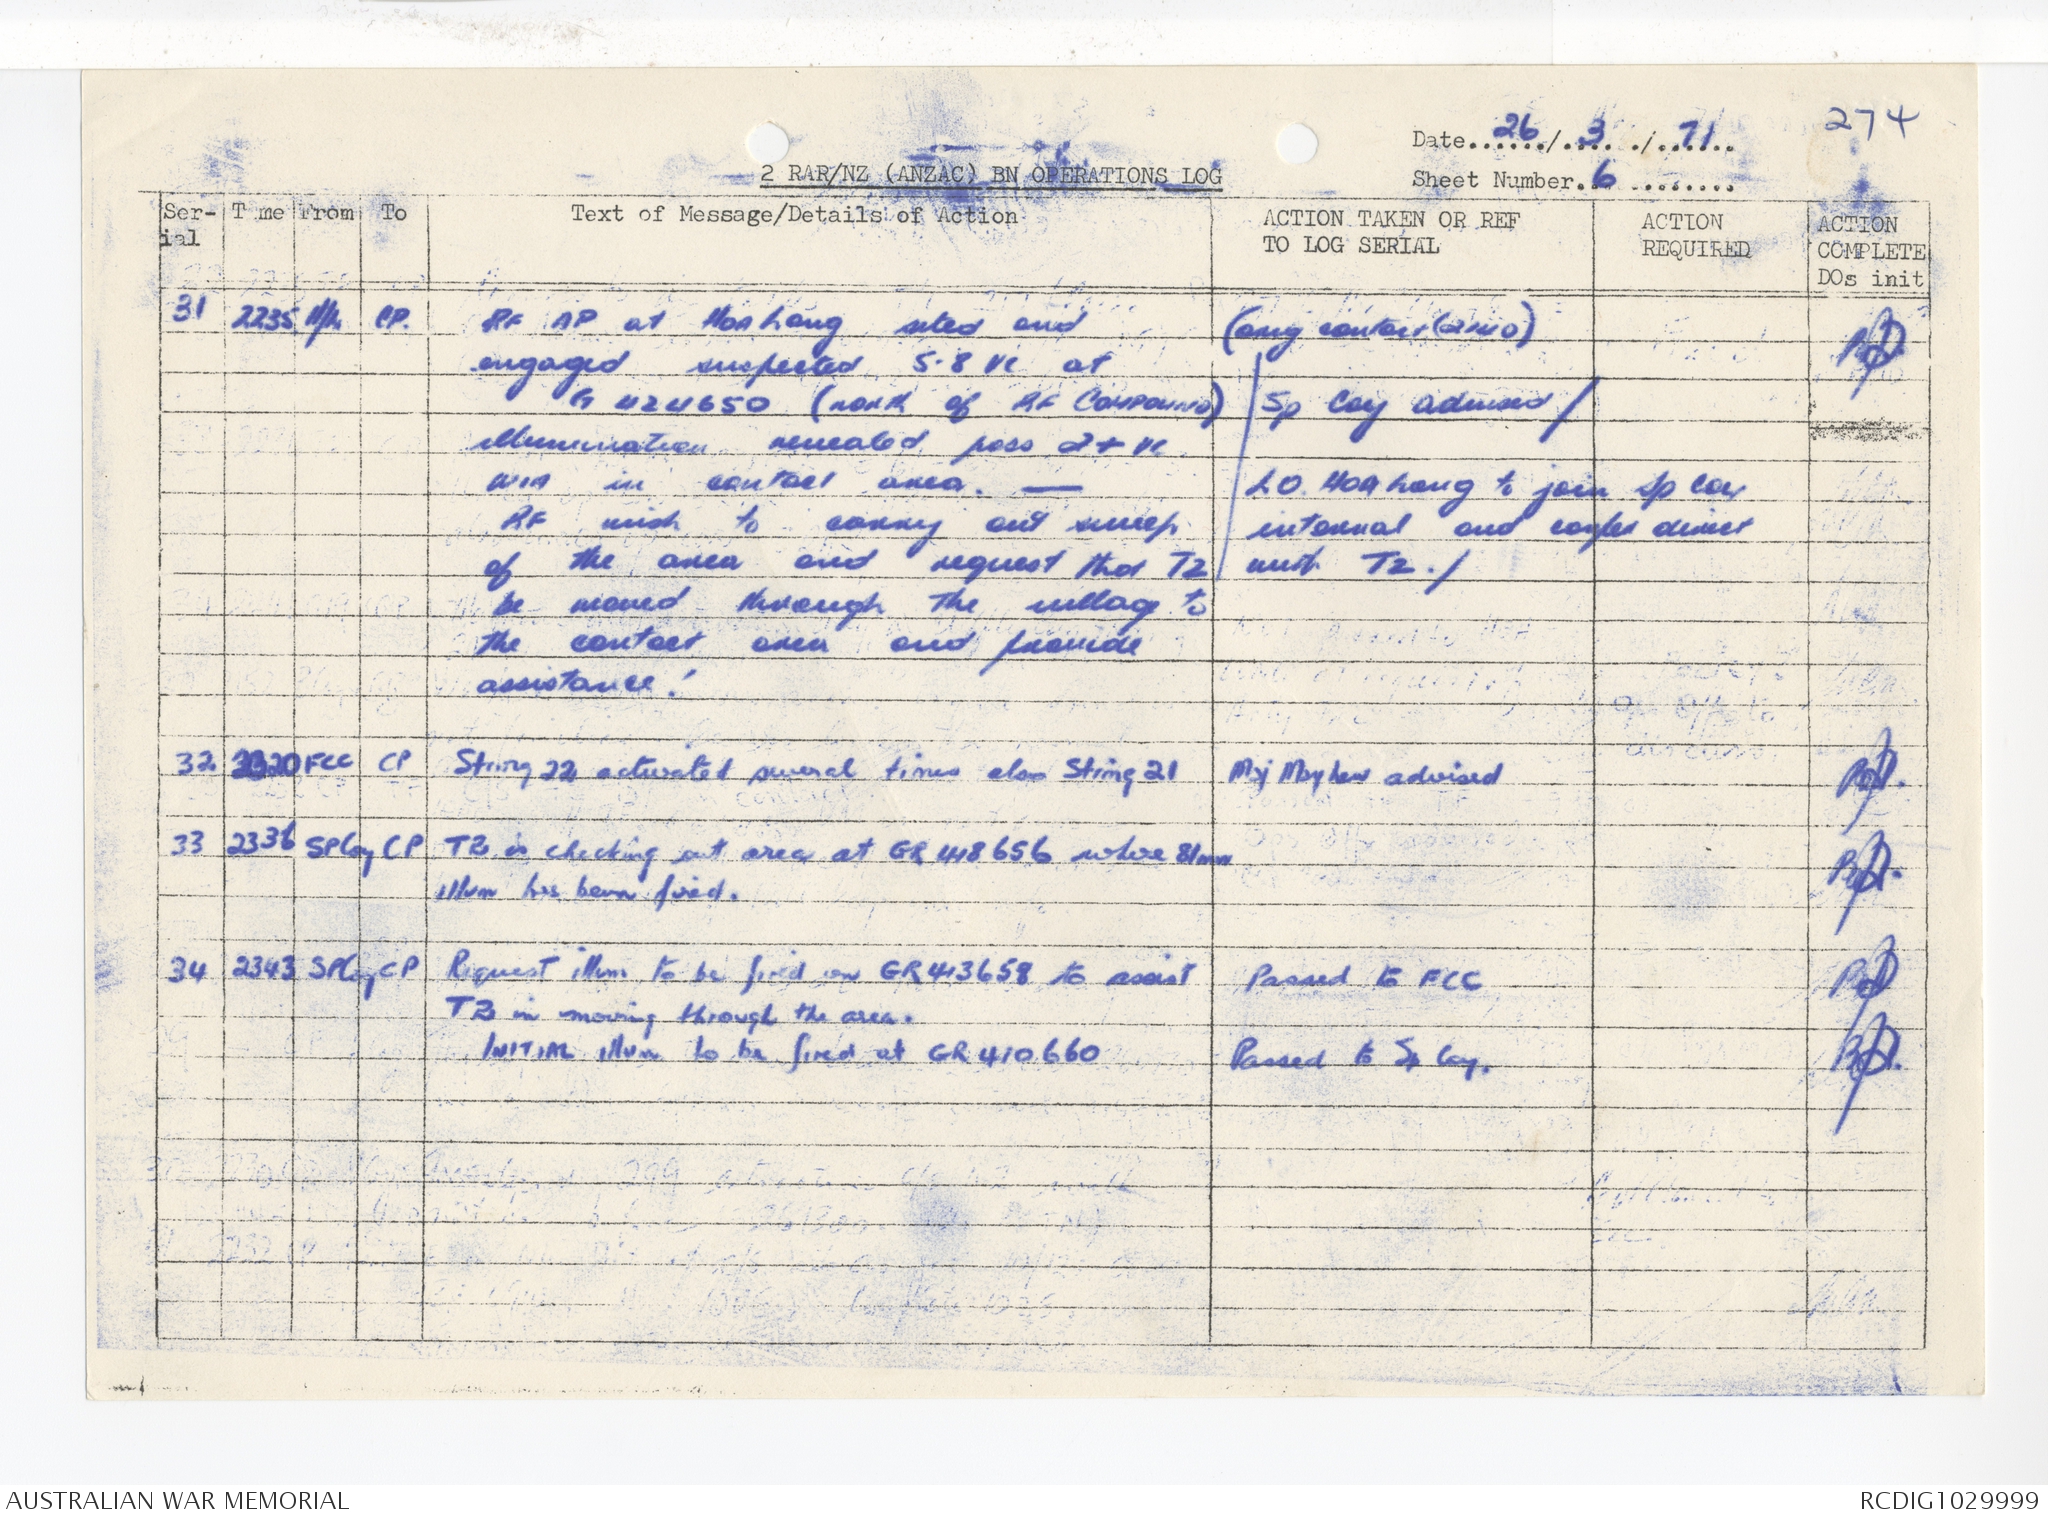 274
Date 26/3/71
2 RAR/NZ (ANZAC) BN OPERATIONS LOG
Sheet Number 6
Ser-ial Time From To Text of Message/Details of Action ACTION TAKEN OR REF TO LOG SERIAL ACTION REQUIRED ACTION COMPLETE DOs init
31 2235 CP. RF AP at HOA Long sited and
engaged suspected 5-8 VC at
424650 (North of RF COMPOUND)
illumination revealed poss 2+ VC
WIA in contact area. —
RF wish to carry out sweep
of the area and request that T2
be moved through the village to
the contact area and provide
assistance.
(Amg contact (2140)
Sp Coy advised /
LO. HOA Long to join Sp Coy
internal and confer direct
with T2. /
32 2320 FCC CP String 22 activated several times also String 21 Maj Mayhew advised
33 2336 SP Coy CP T2 is checking out area at GR 418656 where 81mm
illum has been fired.
34 2343 SP Coy CP Request illum to be fired on GR 413658 to assist Passed to FCC
T2 in moving through the area.
INITIAL illum to be fired at GR 410660 Passed to Sp Coy.
AUSTRALIAN WAR MEMORIAL
RCDIG1029999